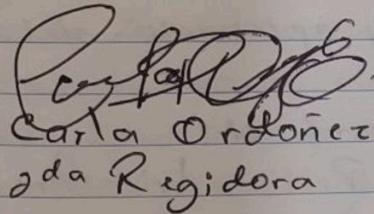 Carla Ordoñez
2da Regidora